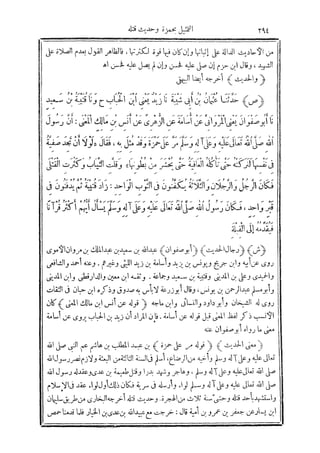 ٢٩٤ التمثيل بحمزة وحديث قتله
من الأحاديث الدالة على إثباتها وإن كان فيها قوة لكثرتها، فالظاهر القول بعدم الصلاة على
الشهيد. وقال ابن حزم إن صلى عليه فحسن وإن لم يصل عليه فحسن اهـ
﴿والحديث﴾ أخرجه أيضا البيهقى
﴿ص﴾ حَدَّثَنَا عُثْمَانُ بْنُ أَبِي شَيْبَةَ نَا زَيْدٌ يَعْنِي ابْنَ الْحُبَابِ ح وَنَا قُتَيْبَةُ بْنُ سَعِيدٍ
نَا أَبُو صَفْوَانَ يَعْنِي الْمَرْوَانِيَّ عَنْ أُسَامَةَ عَنِ الزُّهْرِيِّ عَنْ أَنَسِ بْنِ مَالِكٍ الْمَعْنَى: أَنَّ رَسُولَ
اللهِ صَلَّى اللهُ تَعَالَى عَلَيْهِ وَعَلَى آلِهِ وَسَلَّمَ مَرَّ عَلَى حَمْزَةَ وَقَدْ مُثِّلَ بِهِ، فَقَالَ: لَوْلَا أَنْ تَجِدَ صَفِيَّةُ
فِي نَفْسِهَا لَتَرَكْتُهُ حَتَّى تَأْكُلَهُ الْعَافِيَةُ حَتَّى يُحْشَرَ مِنْ بُطُونِهَا، وَقَلَّتِ الثِّيَابُ وَكَثُرَتِ الْقَتْلَى
فَكَانَ الرَّجُلُ وَالرَّجُلَانِ وَالثَّلَاثَةُ يُكَفَّنُونَ فِي الثَّوْبِ الْوَاحِدِ: زَادَ قُتَيْبَةُ ثُمَّ يُدْفَنُونَ فِي
قَبْرٍ وَاحِدٍ، فَكَانَ رَسُولُ اللهِ صَلَّى اللهُ تَعَالَى عَلَيْهِ وَعَلَى آلِهِ وَسَلَّمَ يَسْأَلُ أَيُّهُمْ أَكْثَرُ قُرْآنًا
فَيُقَدِّمُهُ إِلَى الْقِبْلَةِ
﴿ش﴾ ﴿رجال الحديث﴾ ﴿أبو صفوان﴾ عبد الله بن سعيد بن عبد الملك بن مروان الأموى
روى عن أبيه وابن جريج ويونس بن يزيد وأسامة بن زيد الليثى وغيرهم. وعنه أحمد والشافعى
والحميدى وعلى بن المدينى وقتيبة بن سعيد وجماعة. وثقه ابن معين والدارقطنى وابن المدينى
وأبو مسلم عبد الرحمن بن يونس، وقال أبو زرعة لا بأس به صدوق وذكره ابن حبان فى الثقات
روى له الشيخان وأبو داود والنسائى وابن ماجه ﴿قوله عن أنس بن مالك المعنى﴾ كان
الأنسب ذكر لفظ المعنى قبل قوله عن أسامة. فإن المراد أن زيد بن الحباب يروى عن أسامة
معنى ما رواه أبو صفوان عنه
﴿معنى الحديث﴾ ﴿قوله مر على حمزة﴾ بن عبد المطلب بن هاشم عم النبى صلى الله
تعالى عليه وعلى آله وسلم وأخيه من الرضاع، أسلم فى السنة الثانية من البعثة ولازم نصر رسول الله
صلى الله تعالى عليه وعلى آله وسلم، وهاجر وشهد بدرا وقتل طعيمة بن عدى وعقد له رسول الله
صلى الله تعالى عليه وعلى آله وسلم لواء، وأرسله فى سرية فكان ذلك أول لواء عقد فى الإسلام
واستشهد بأحد قتله وحشى سنة ثلاث من الهجرة. وحديث قتله أخرجه البخارى من طريق سليمان
ابن يسار عن جعفر بن عمرو بن أمية قال: خرجت مع عبيد الله بن عدى بن الخيار فلما قدمنا حمص